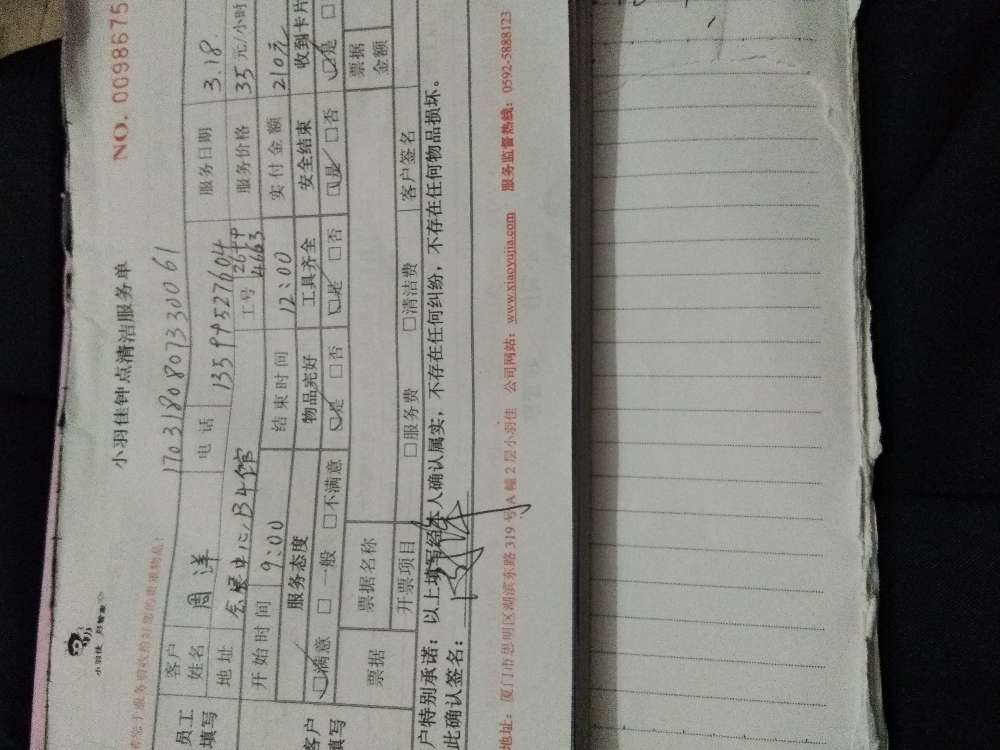 小羽佳 好管家
小羽佳钟点清洁服务单
NO. 0098675
于服务前收拾好您的贵重物品!
17031808073300 61
员工填写
客户姓名 周洋 电话 13599527604 服务日期 3.18
地址 会展中心B4馆 工号 2699 4663 服务价格 35元/小时
开始时间 9:00 结束时间 12:00 实付金额 210元
客户填写
服务态度 物品完好 工具齐全 安全结束 收到卡片
☑满意 □一般 □不满意 ☑是 □否 ☑是 □否 ☑是 □否 ☑是 □
票据 票据名称 票据金额
开票项目 □服务费 □清洁费 客户签名
户特别承诺:以上填写经本人确认属实,不存在任何纠纷,不存在任何物品损坏。
此确认签名:
地址:厦门市思明区湖滨东路319号A幢2层小羽佳 公司网站:www.xiaoyujia.com 服务监督热线:0592-5888123